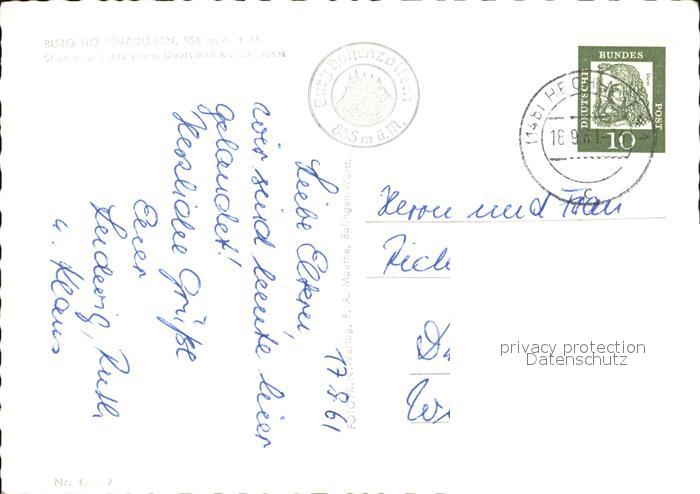 BURG HOHENZOLLERN, 855 m ü. d. M.
Stammburg des ehem. Deutschen Kaiserhauses
Burg Hohenzollern
855 m ü.M.
DEUTSCHE
BUNDES
POST
Dürer
10
(14b) HECHINGEN
18.9.61
c
17.9.61
Liebe Eltern,
wir sind heute hier
gelandet!
Herzliche Grüße
Euer
Ludwig, Ruth
u. Klaus
Verlag, F. A. Mauthe, Balingen
Herrn und Frau
privacy protection
Datenschutz
Nr.